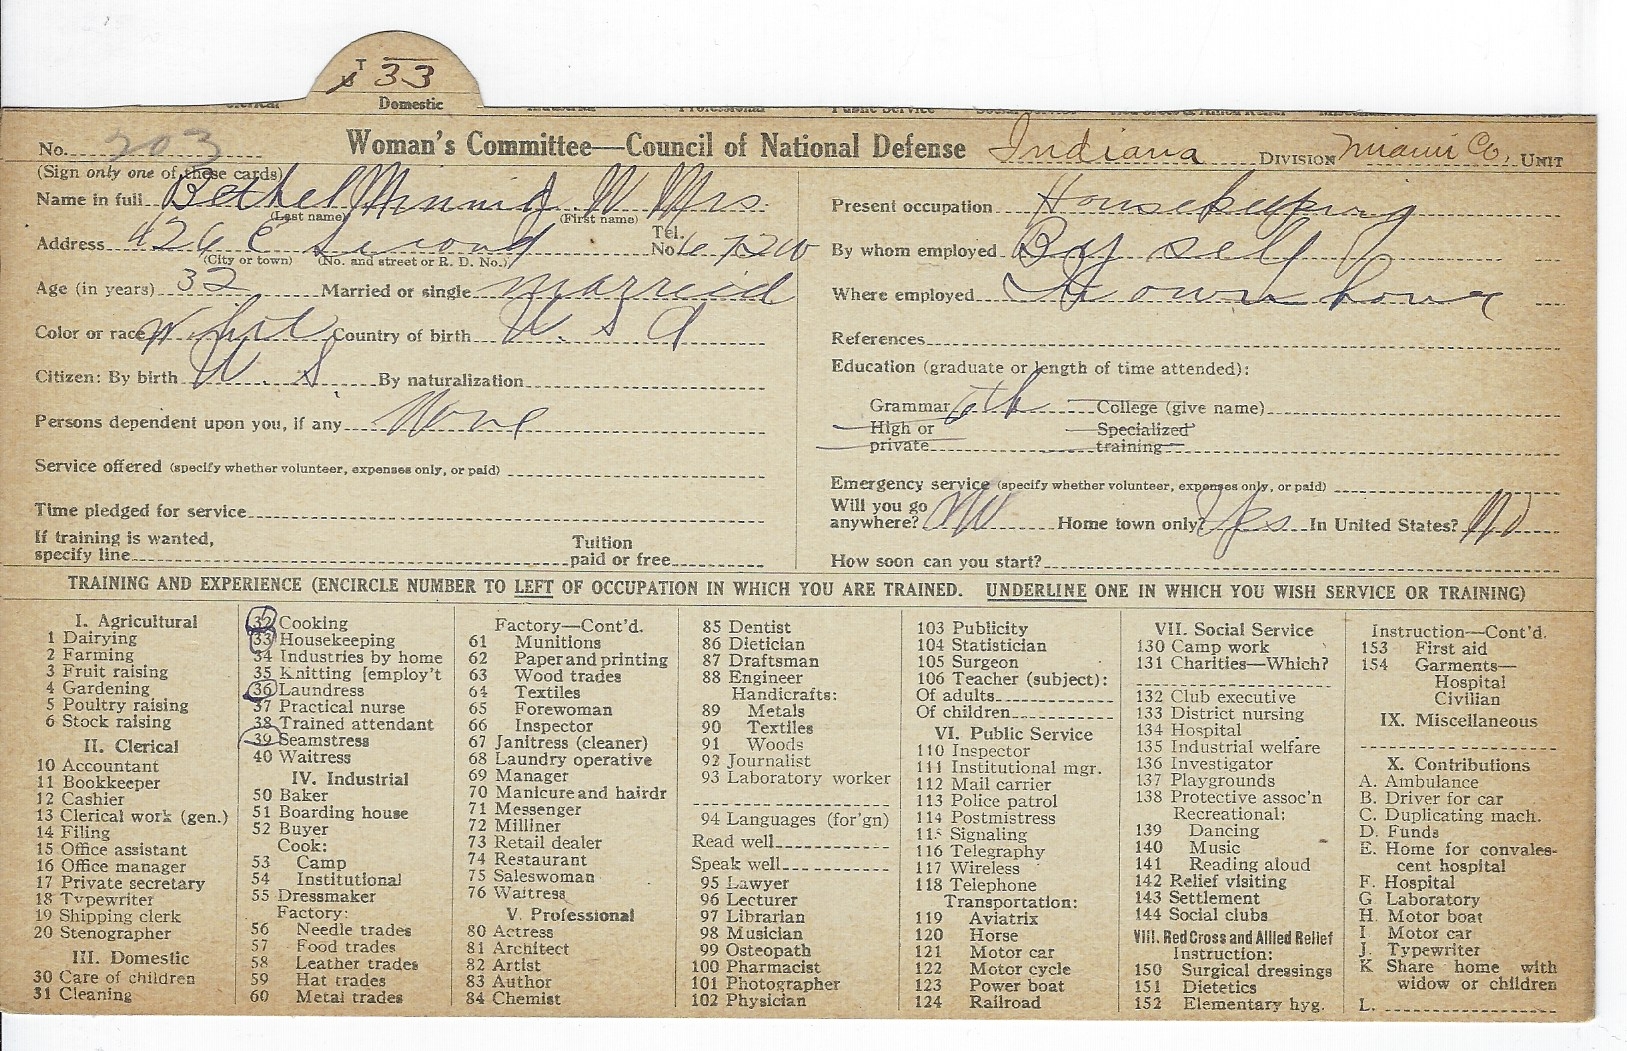 T 33
Domestic
No. 203 Woman's Committee—Council of National Defense Indiana DIVISION Miami Co. UNIT
(Sign only one of these cards)
Name in full Bethel W Mrs.
(Last name) (First name)
Address 426 E Second Tel. No.
(City or town) (No. and street or R. D. No.)
Age (in years) 32 Married or single married
Color or race White Country of birth U. S A
Citizen: By birth U. S By naturalization
Persons dependent upon you, if any None
Service offered (specify whether volunteer, expenses only, or paid)
Time pledged for service
If training is wanted,
specify line Tuition paid or free
Present occupation Housekeeping
By whom employed By self
Where employed At own home
References
Education (graduate or length of time attended):
Grammar 6th College (give name)
High or private Specialized training
Emergency service (specify whether volunteer, expenses only, or paid)
Will you go anywhere? No Home town only? Yes In United States? No
How soon can you start?
TRAINING AND EXPERIENCE (ENCIRCLE NUMBER TO LEFT OF OCCUPATION IN WHICH YOU ARE TRAINED. UNDERLINE ONE IN WHICH YOU WISH SERVICE OR TRAINING)
I. Agricultural
1 Dairying
2 Farming
3 Fruit raising
4 Gardening
5 Poultry raising
6 Stock raising
II. Clerical
10 Accountant
11 Bookkeeper
12 Cashier
13 Clerical work (gen.)
14 Filing
15 Office assistant
16 Office manager
17 Private secretary
18 Typewriter
19 Shipping clerk
20 Stenographer
III. Domestic
30 Care of children
31 Cleaning
32 Cooking
33 Housekeeping
34 Industries by home
35 Knitting [employ't
36 Laundress
37 Practical nurse
38 Trained attendant
39 Seamstress
40 Waitress
IV. Industrial
50 Baker
51 Boarding house
52 Buyer
Cook:
53 Camp
54 Institutional
55 Dressmaker
Factory:
56 Needle trades
57 Food trades
58 Leather trades
59 Hat trades
60 Metal trades
Factory—Cont'd.
61 Munitions
62 Paper and printing
63 Wood trades
64 Textiles
65 Forewoman
66 Inspector
67 Janitress (cleaner)
68 Laundry operative
69 Manager
70 Manicure and hairdr
71 Messenger
72 Milliner
73 Retail dealer
74 Restaurant
75 Saleswoman
76 Waitress
V. Professional
80 Actress
81 Architect
82 Artist
83 Author
84 Chemist
85 Dentist
86 Dietician
87 Draftsman
88 Engineer
Handicrafts:
89 Metals
90 Textiles
91 Woods
92 Journalist
93 Laboratory worker
94 Languages (for'gn)
Read well
Speak well
95 Lawyer
96 Lecturer
97 Librarian
98 Musician
99 Osteopath
100 Pharmacist
101 Photographer
102 Physician
103 Publicity
104 Statistician
105 Surgeon
106 Teacher (subject):
Of adults
Of children
VI. Public Service
110 Inspector
111 Institutional mgr.
112 Mail carrier
113 Police patrol
114 Postmistress
115 Signaling
116 Telegraphy
117 Wireless
118 Telephone
Transportation:
119 Aviatrix
120 Horse
121 Motor car
122 Motor cycle
123 Power boat
124 Railroad
VII. Social Service
130 Camp work
131 Charities—Which?
132 Club executive
133 District nursing
134 Hospital
135 Industrial welfare
136 Investigator
137 Playgrounds
138 Protective assoc'n
Recreational:
139 Dancing
140 Music
141 Reading aloud
142 Relief visiting
143 Settlement
144 Social clubs
VIII. Red Cross and Allied Relief
Instruction:
150 Surgical dressings
151 Dietetics
152 Elementary hyg.
Instruction—Cont'd.
153 First aid
154 Garments—
Hospital
Civilian
IX. Miscellaneous
X. Contributions
A. Ambulance
B. Driver for car
C. Duplicating mach.
D. Funds
E. Home for convales-
cent hospital
F. Hospital
G. Laboratory
H. Motor boat
I Motor car
J. Typewriter
K Share home with
widow or children
L.